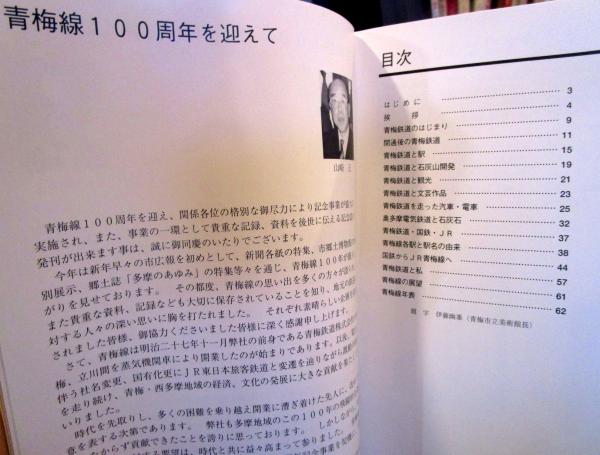 青梅線１００周年を迎えて
山崎
青梅線１００周年を迎え、関係各位の格別な御尽力により記念事業が
実施され、また、事業の一環として貴重な記録、資料を後世に伝える記念
発刊が出来ます事は、誠に御同慶のいたりでございます。
今年は新年早々の市広報を初めとして、新聞各紙の特集、市郷土博物館
別展示、郷土誌「多摩のあゆみ」の特集等々を通じ、青梅線１００年が
がりを見せております。その都度、青梅線の思い出を多くの方々が
また貴重な資料、記録なども大切に保存されていることを知り、地元の
対する人々の深い思いに胸を打たれました。それぞれ素晴らしい企画を
されました皆様、御協力くださいました皆様に深く感謝申し上げます。
さて、青梅線は明治二十七年十一月弊社の前身である青梅鉄道株式会社
梅、立川間を蒸気機関車により開業したのが始まりであります。以後、
伴う社名変更、国有化更にＪＲ東日本旅客鉄道と変遷を辿りながら
を走り続け、青梅・西多摩地域の経済、文化の発展に大きな貢献を果た
いりました。
時代を先取りし、多くの困難を乗り越え開業に漕ぎ着けた先人に、
意を表する次第であります。弊社も多摩地域のこの１００年の
たからず貢献できたことを誇りに思っております。しかしながら、
する要望は、時代と共に益々高まって参りました。
目次
はじめに 3
挨拶 4
青梅鉄道のはじまり 9
開通後の青梅鉄道 11
青梅鉄道と駅 15
青梅鉄道と石灰山開発 19
青梅鉄道と観光 21
青梅鉄道と文芸作品 23
青梅鉄道を走った汽車・電車 25
奥多摩電気鉄道と石灰石 32
青梅鉄道・国鉄・ＪＲ 37
青梅線各駅と駅名の由来 38
国鉄からＪＲ青梅線へ 44
青梅鉄道と私 57
青梅線の展望 61
青梅線年表 62
題字 伊藤（青梅市立美術館長）